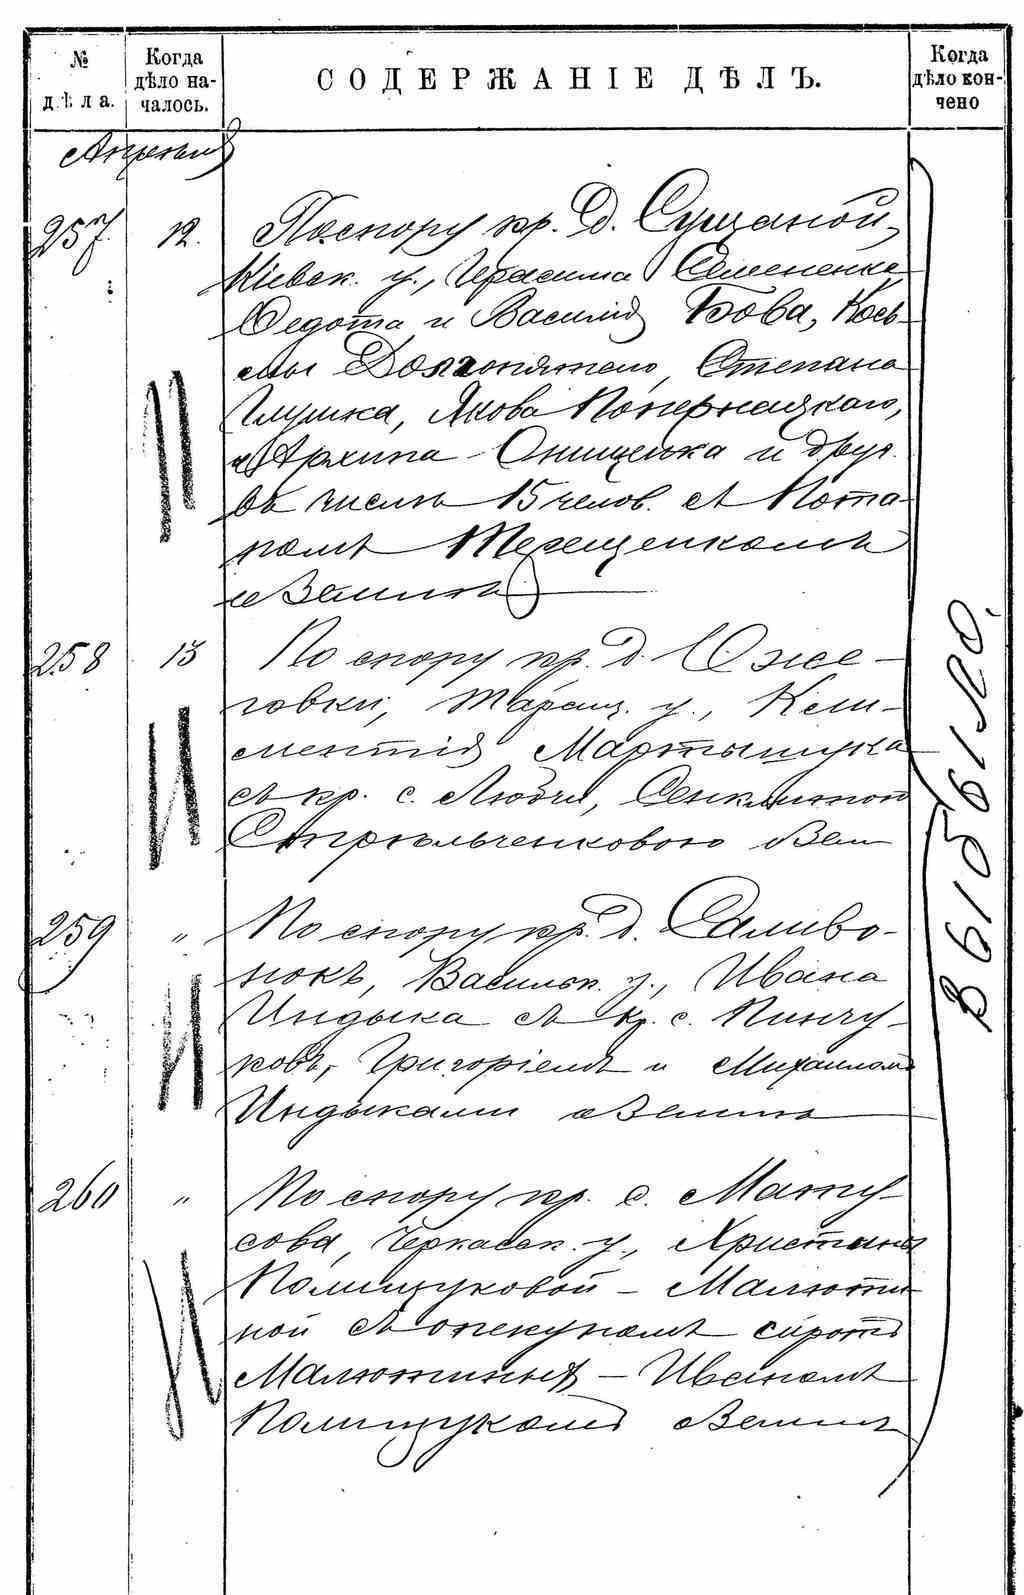 № дѣла.
Когда дѣло началось.
СОДЕРЖАНІЕ ДѢЛЪ.
Когда дѣло кончено
Апрѣля
257. 12. По спору кр. д. Сущаной,
Кіевск. у., Герасима Семененка
Федота и Василія Бова, Кось-
мы Долгопятаго, Степана
Глушка, Якова
и Архипа Онищенка и друг.
въ числѣ 15 челов. съ Пота-
помъ Терещенкомъ
о землѣ
258 13 По спору кр. д. Юзе-
говки, Таращ. у., Кли-
ментія Мартышука
съ кр. с. Лю
Стрѣльченковою о зем
259 " По спору кр. д. Саливо-
нокъ, Васильк. у., Ивана
Индыка съ кр. с. Пинчу-
ковъ, Григоріемъ и Михаиломъ
Индыками о землѣ
260 " По спору кр. с. Мату-
сова, Черкасск. у., Христины
Полищуковой - Малюти-
ной съ опекуномъ сиротъ
Малютиныхъ - Иваномъ
Полищукомъ о землѣ